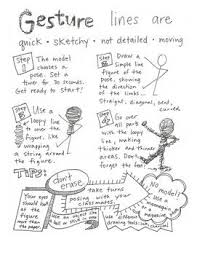 Gesture lines are
quick · sketchy · not detailed · moving
Step 1 The model
chooses a
pose. Set a
timer for 30 seconds.
Get ready to start!
Step 2 Draw a
simple line
figure of the
pose, showing
the direction
of the limbs -
straight, diagonal, bend,
curved
Step 3 Use a
loopy line
to over
the figure,
like
wrapping
a string around
the figure.
Step 4 Go over
all parts
with the loopy
line, making
thicker and thinner
areas. Don't
forget the feet!
TIPS:
Your eyes
should look
at the
figure
more than
the paper.
don't
erase
take turns
posing with your
classmates
Use an object like
No model?
use a
mannequin
or
magazine
use different
drawing tools